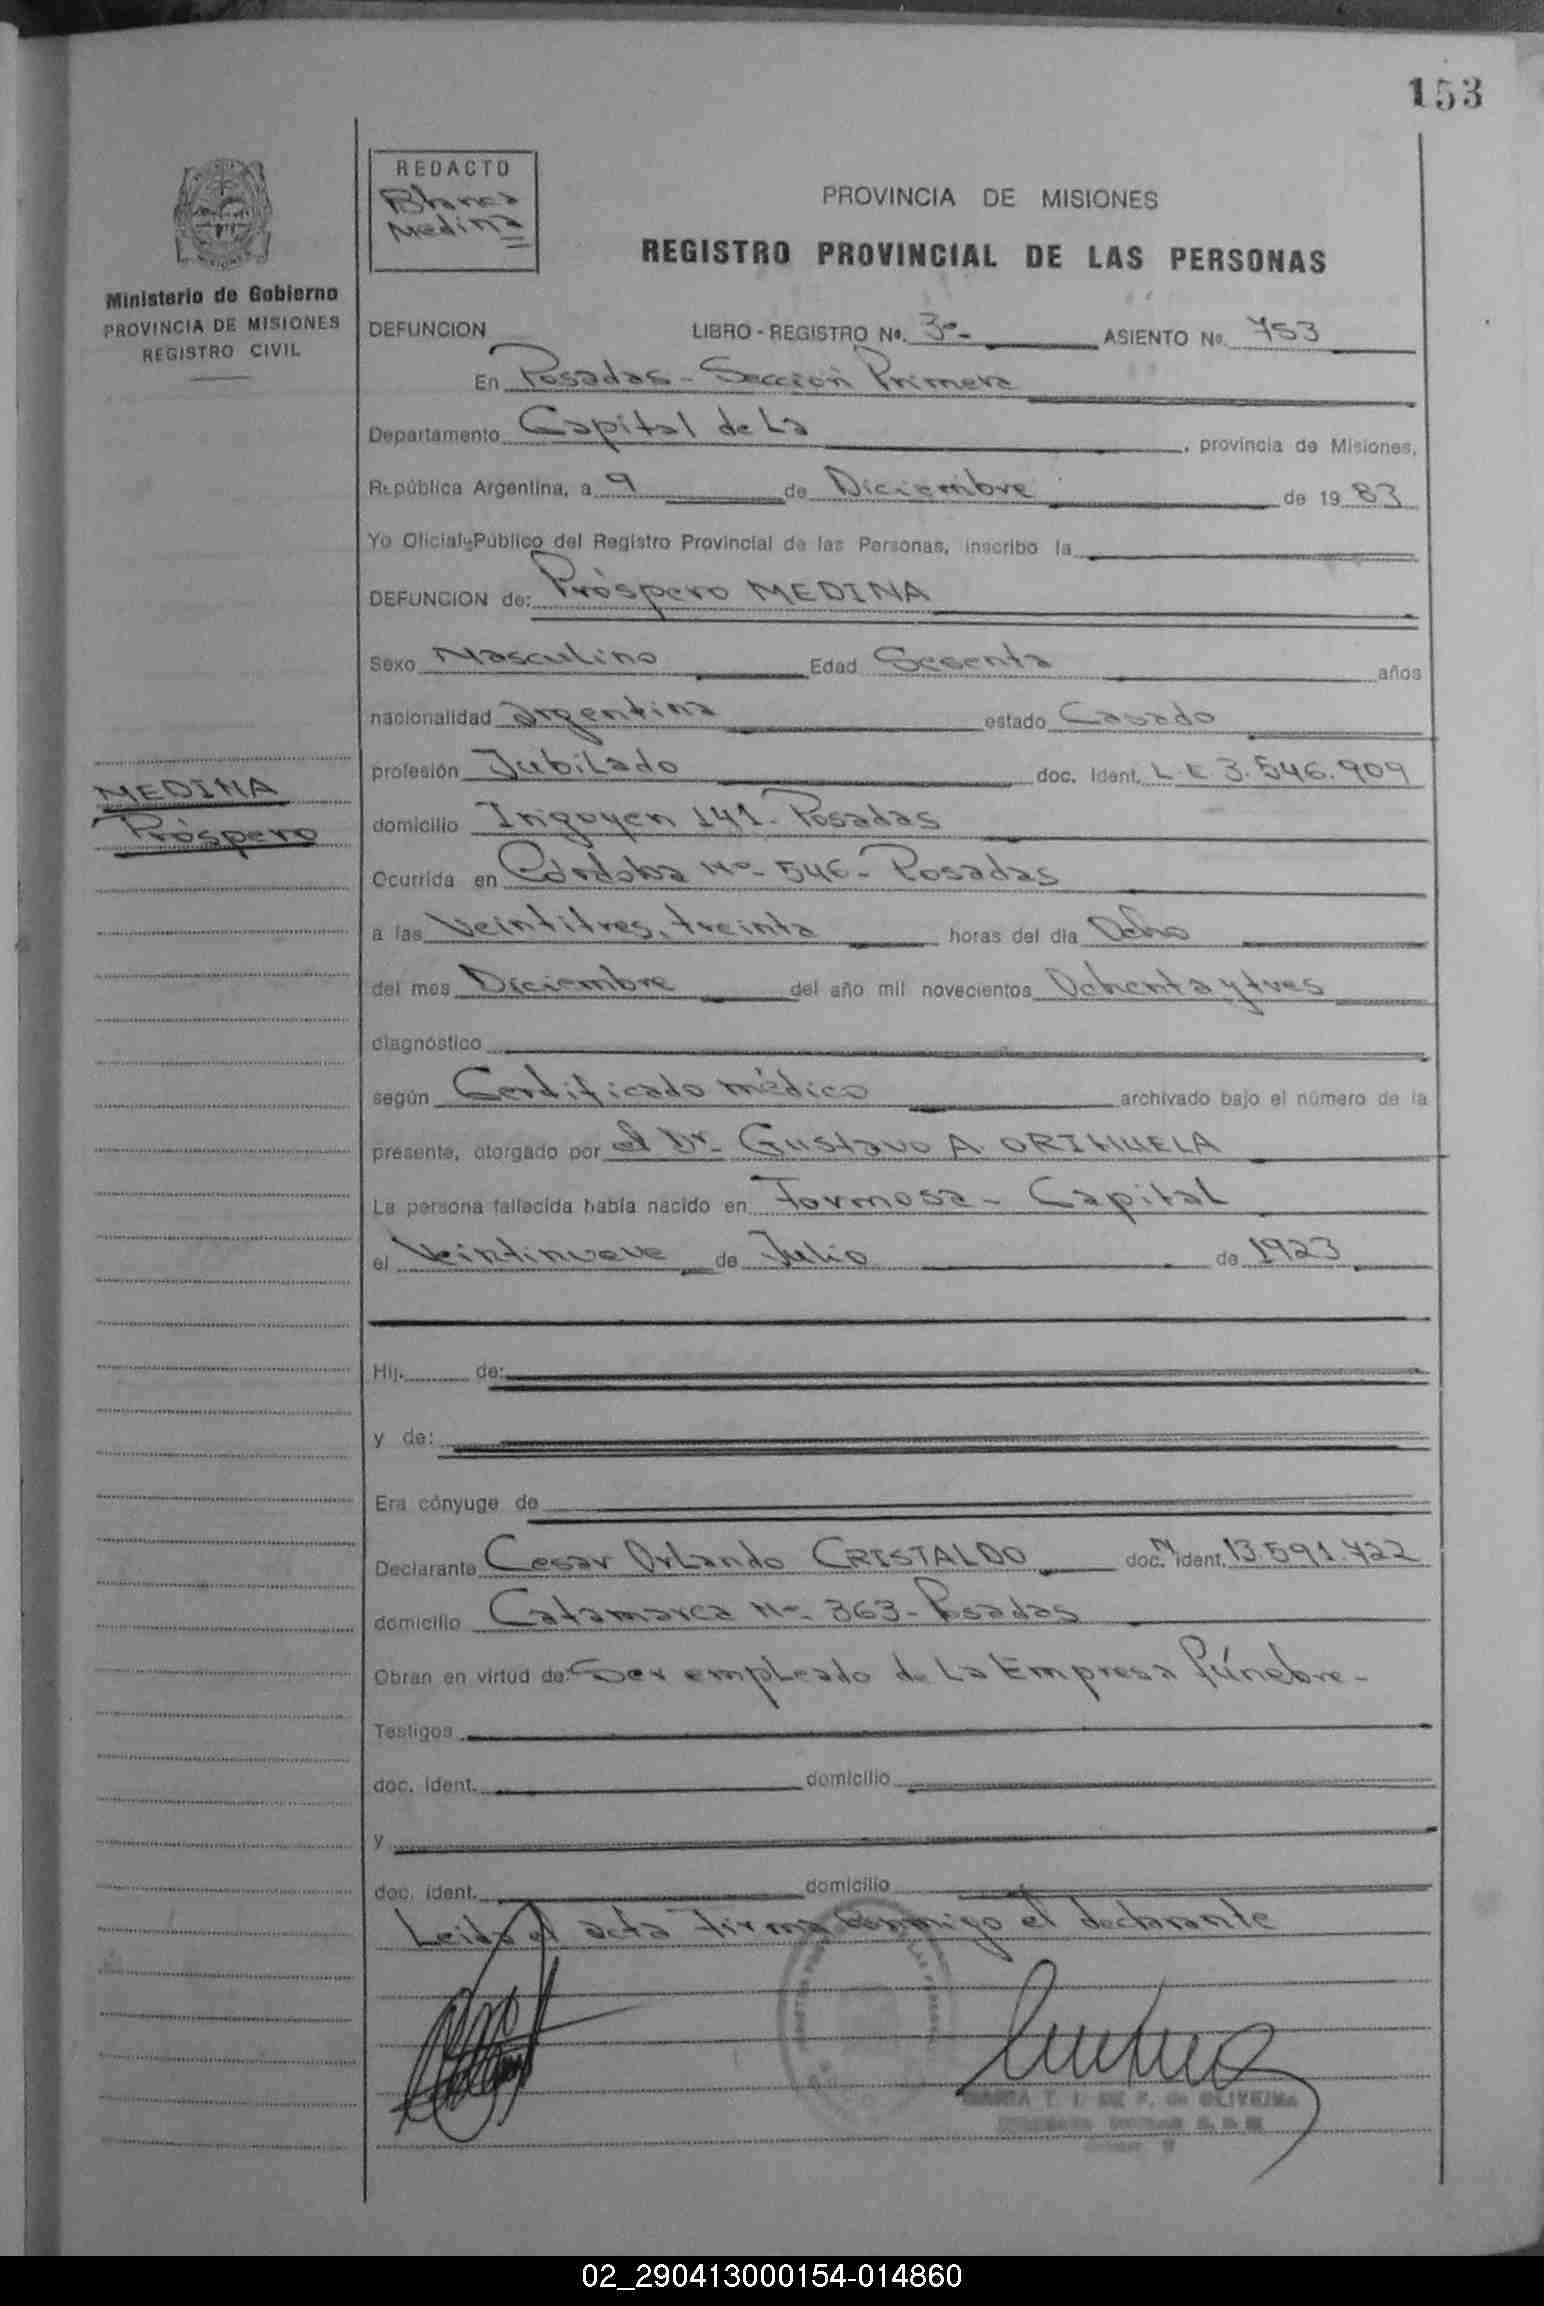 153
REDACTO
Blanca
Medina
PROVINCIA DE MISIONES
REGISTRO PROVINCIAL DE LAS PERSONAS
Ministerio de Gobierno
PROVINCIA DE MISIONES
REGISTRO CIVIL
DEFUNCION LIBRO - REGISTRO Nº. 3º- ASIENTO Nº. 753
En Posadas - Sección Primera
Departamento Capital de La, provincia de Misiones,
República Argentina, a 9 de Diciembre de 19 83
Yo Oficial Público del Registro Provincial de las Personas, inscribo la
DEFUNCION de: Próspero MEDINA
Sexo Masculino Edad Sesenta años
nacionalidad argentina estado Casado
profesión Jubilado doc. Ident. L.E 3.546.909
MEDINA
Próspero
domicilio Irigoyen 141- Posadas
Ocurrida en Córdoba Nº- 546- Posadas
a las Veintitres, treinta horas del día Ocho
del mes Diciembre del año mil novecientos Ochenta y tres
diagnóstico
según Certificado médico archivado bajo el número de la
presente, otorgado por el Dr- Gustavo A. ORIHUELA
La persona fallecida había nacido en Formosa - Capital
el Veintinueve de Julio de 1923
Hij. de:
y de:
Era cónyuge de
Declarante Cesar Orlando CRISTALDO doc. ident. 13.591.422
domicilio Catamarca Nº- 363- Posadas
Obran en virtud de: Ser empleado de La Empresa fúnebre-
Testigos
doc. ident. domicilio
y
doc. ident. domicilio
Leida el acta firma conmigo el declarante
T. I. DE F. de OLIVEIRA
02_290413000154-014860